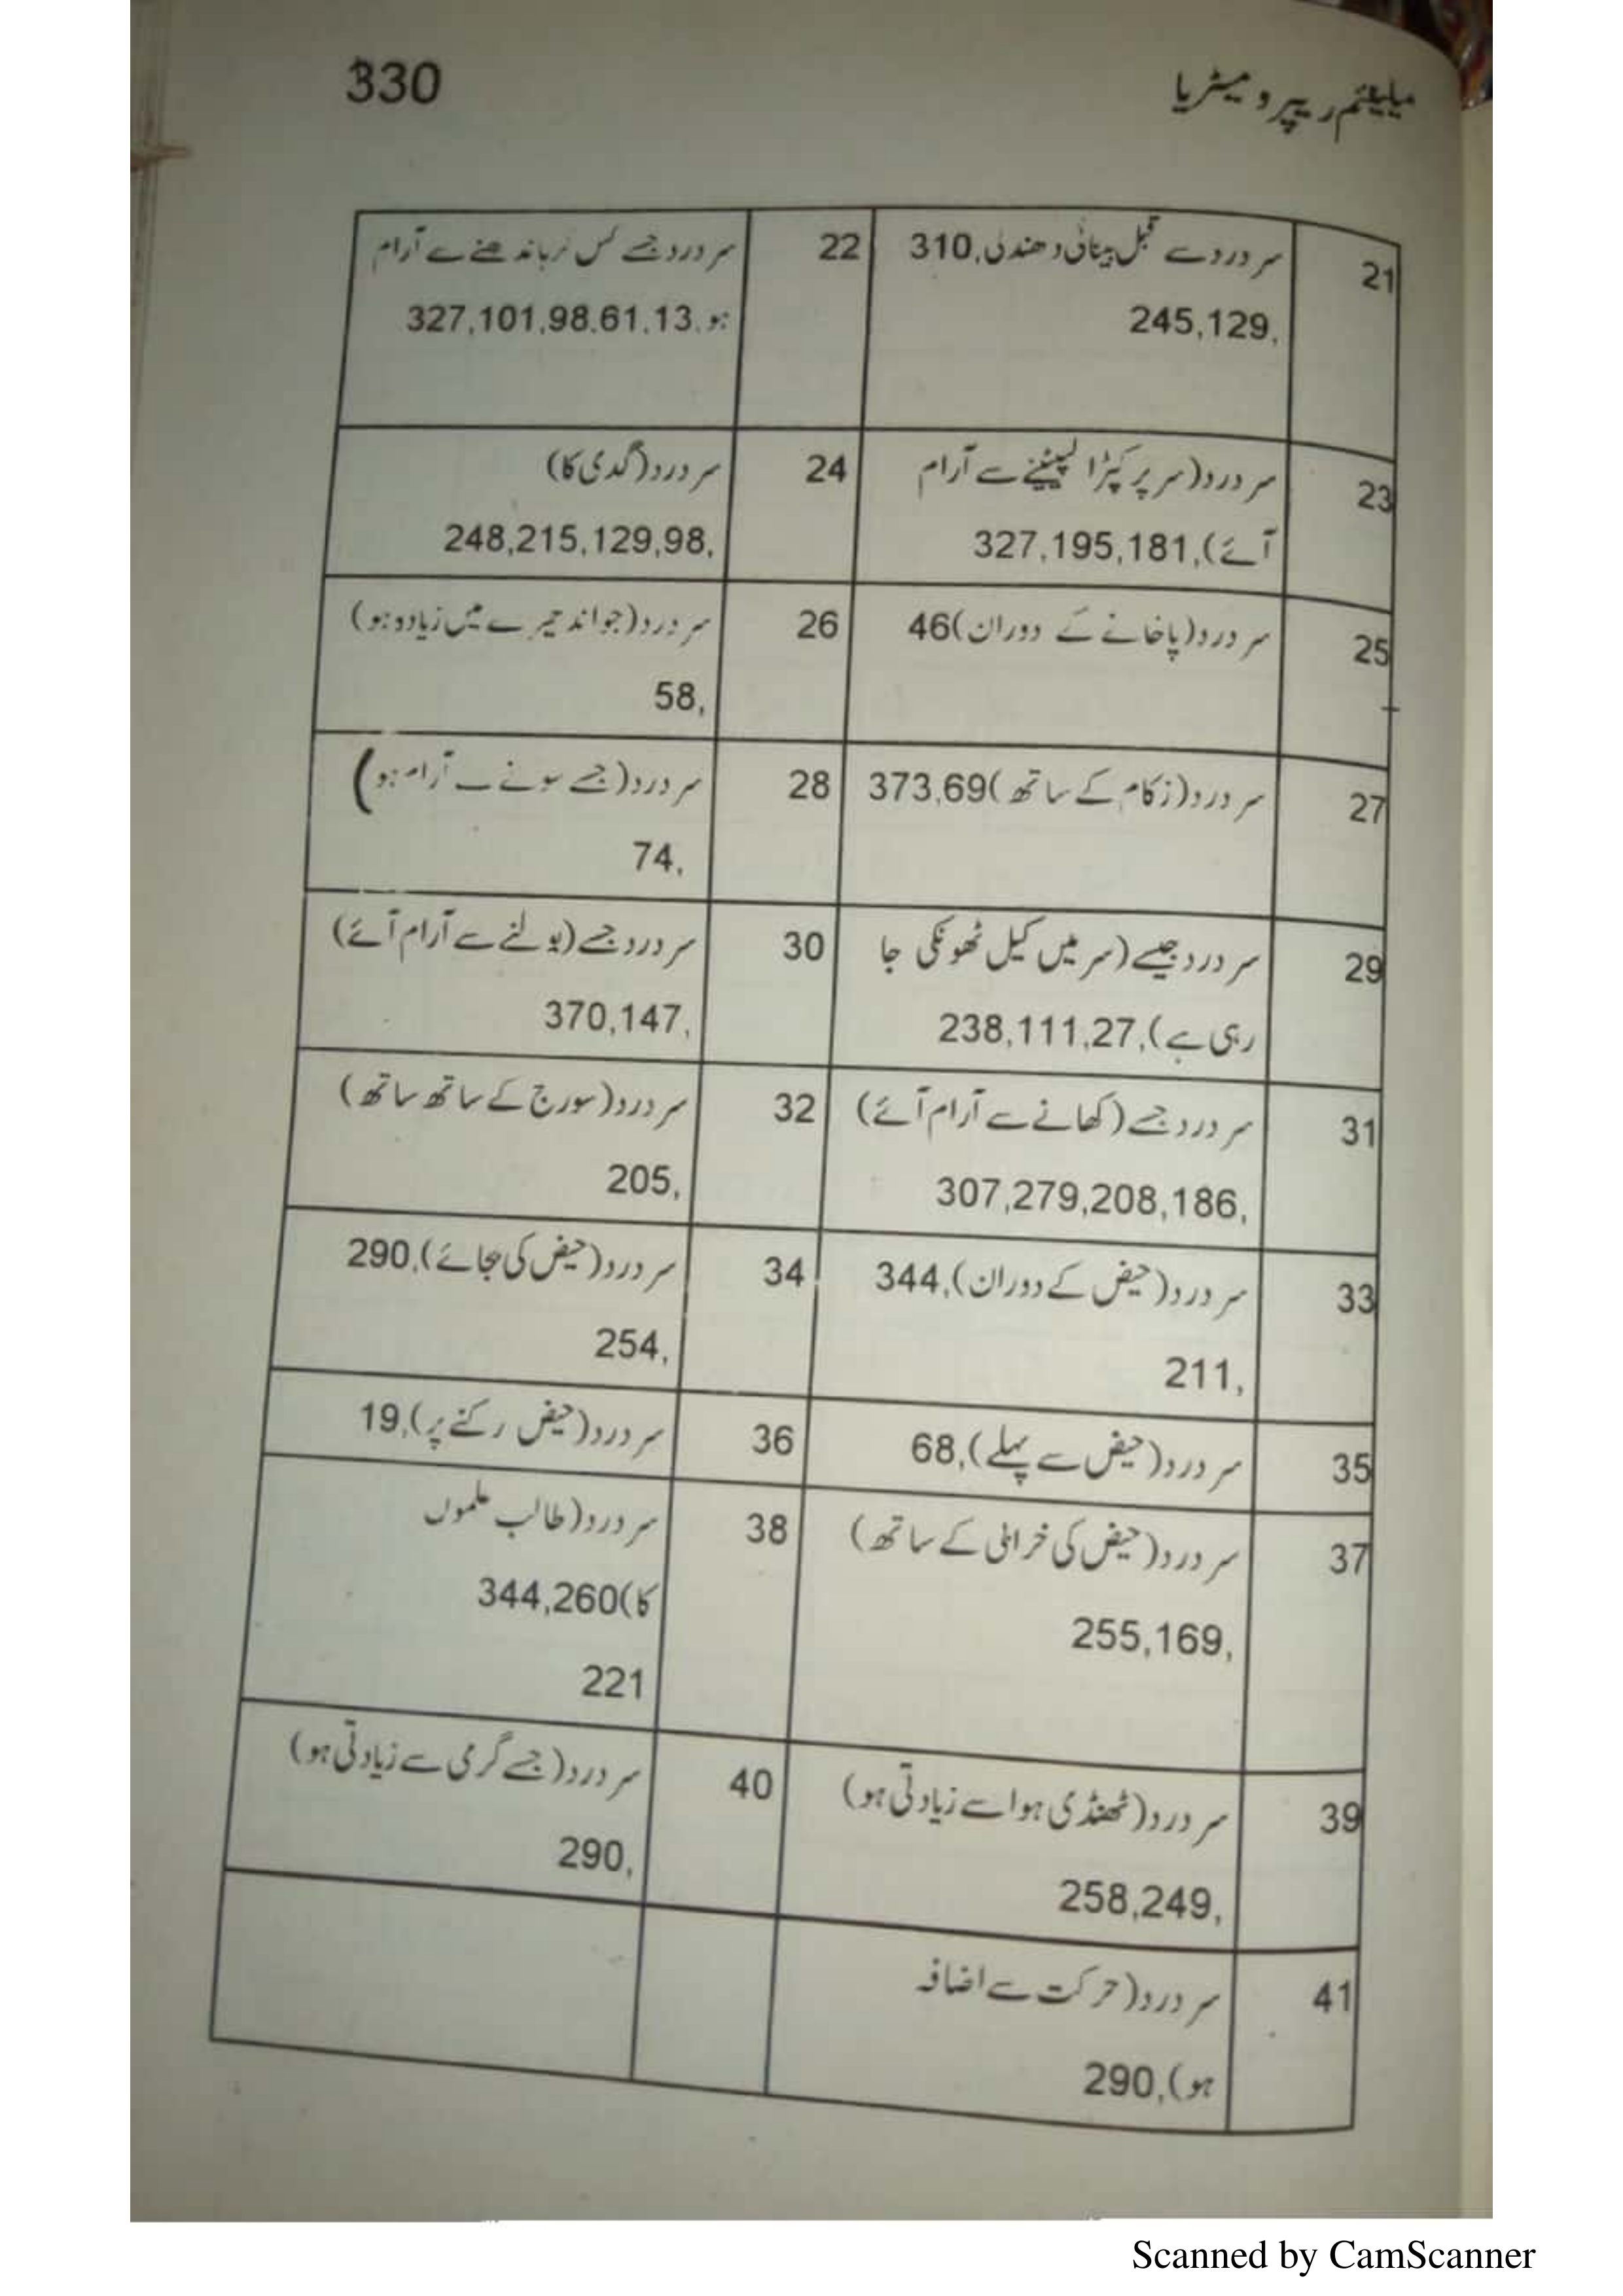 میلینیم ریپرومیٹریا
330
21
سر درد سے قبل بینائی دھندلی,310
245,129,
22
سر درد جسے کس کر باندھنے سے آرام
ہو,327,101,98,61,13
23
سر درد(سر پر کپڑا لپیٹنے سے آرام
آئے),327,195,181
24
سر درد(گدی کا)
248,215,129,98,
25
سر درد(پاخانے کے دوران)46
26
سر درد(جو اندھیرے میں زیادہ ہو)
58,
27
سر درد(زکام کے ساتھ)373,69
28
سر درد(جسے سونے سے آرام ہو)
74,
29
سر درد جیسے(سر میں کیل ٹھونکی جا
رہی ہے),238,111,27
30
سر درد جسے(بولنے سے آرام آئے)
370,147,
31
سر درد جسے(کھانے سے آرام آئے)
307,279,208,186,
32
سر درد(سورج کے ساتھ ساتھ)
205,
33
سر درد(حیض کے دوران),344
211,
34
سر درد(حیض کی بجائے),290
254,
35
سر درد(حیض سے پہلے),68
36
سر درد(حیض رکنے پر),19
37
سر درد(حیض کی خرابی کے ساتھ)
255,169,
38
سر درد(طالب علموں
کا)344,260
221
39
سر درد(ٹھنڈی ہوا سے زیادتی ہو)
258,249,
40
سر درد(جسے گرمی سے زیادتی ہو)
290,
41
سر درد(حرکت سے اضافہ
ہو),290
Scanned by CamScanner